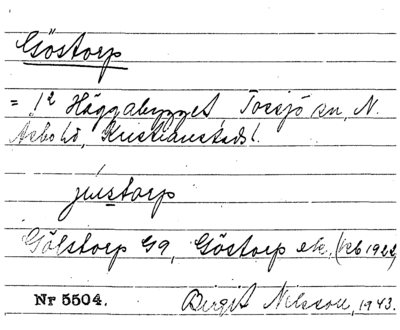 Göstorp
= 1² Häggabygget, Tossjö sn, N.
Åsbo hd, Kristianstads l.
jœstorp
Gölstorp G9, Göstorp ek. (kb 1922)
Nr 5504. Birgit Nilsson, 1943.